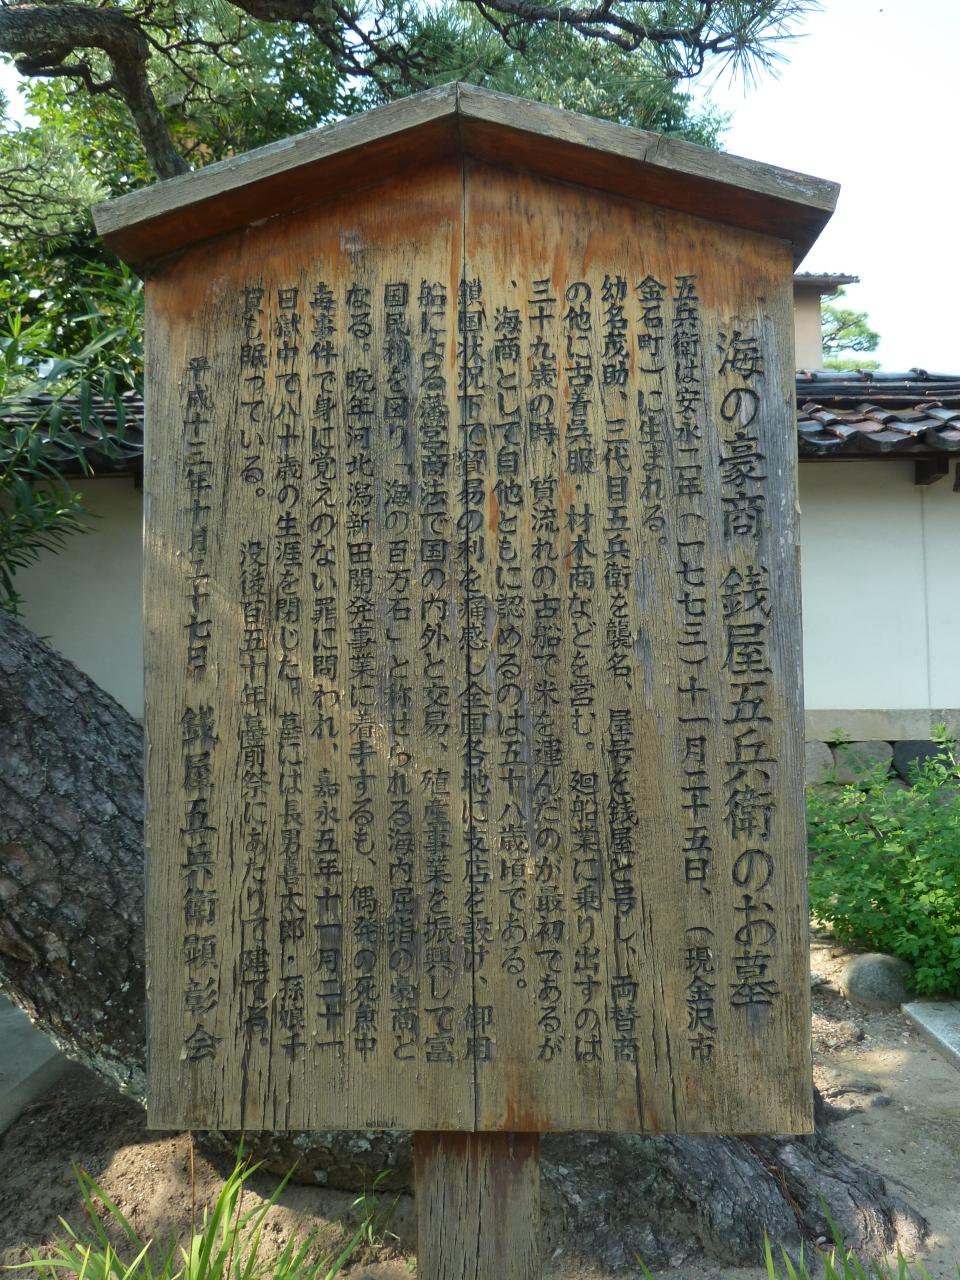 海の豪商 銭屋五兵衛のお墓
五兵衛は安永二年(一七七三)十一月二十五日、(現金沢市
金石町)に生まれる。
幼名茂助、三代目五兵衛を襲名、屋号を銭屋と号し、両替商
の他に古着呉服・材木商などを営む。廻船業に乗り出すのは
三十九歳の時、質流れの古船で米を運んだのが最初であるが
、海商として自他ともに認めるのは五十八歳頃である。
鎖国状況下で貿易の利を痛感し全国各地に支店を設け、御用
船による藩営商法で国の内外と交易、殖産事業を振興して富
国民利を図り「海の百万石」と称せられる海内屈指の豪商と
なる。晩年河北潟新田開発事業に着手するも、偶発の死魚中
毒事件で身に覚えのない罪に問われ、嘉永五年十一月二十一
日獄中で八十歳の生涯を閉じた。墓には長男喜太郎・孫娘千
賀も眠っている。 没後百五十年墓前祭にあたりて建て有。
平成十三年十月二十七日 銭屋五兵衛顕彰会